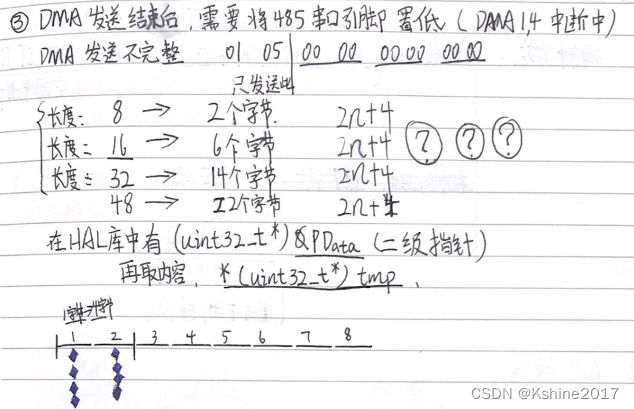 ③ DMA 发送结束后,需要将485串口引脚置低(DMA1,4中断中)
DMA 发送不完整 01 05 00 00 00 00 00 00
只发送出
长度: 8 → 2个字节. 2n+4
长度: 16 → 6个字节 2n+4 ? ? ?
长度: 32 → 14个字节 2n+4
48 → 22个字节 2n+4
在HAL库中有 (uint32_t*)&PData (二级指针)
再取内容, *(uint32_t*) tmp.
1 2 3 4 5 6 7 8
CSDN @Kshine2017